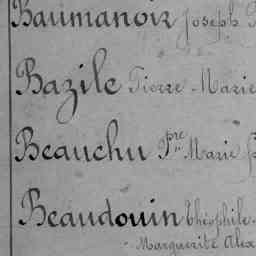 Baumanoir Joseph
Bazile Pierre Marie
Beauchu Pre Marie
Beaudouin Théophile
Marguerite Alex